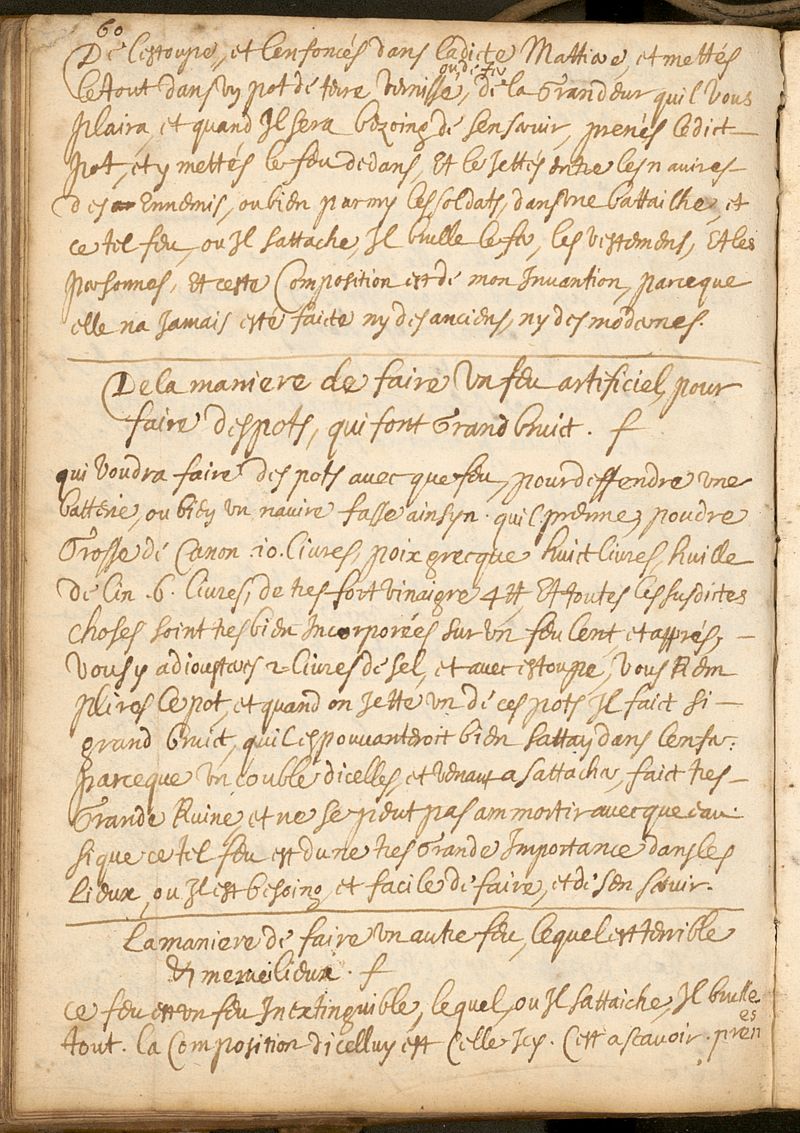 60
De lestoupe, et lenfoncés dans ladicte Mattiere, et mettés
ou de fer
le tout dans vn pot de terre vernisse, de la Grandeur quil vous
plaira, et quand Il sera bezoing de sen seruir, prenés ledict
pot, et y mettés le feu dedans, Et le Jettés entre les nauires
des Ennemis, ou bien parmy les soldats, dans vne battailhe, et
ce tel feu, ou Il sattache, Il brulle le fer, les vestemens, Et les
personnes, Et ceste Composition est de mon Inuantion, parceque
elle na Jamais esté faicte ny des anciens, ny des modernes.
De la maniere de faire Vn feu artificiel, pour
faire des pots, qui font Grand bruict.
qui voudra faire des pots auecque feu, pour deffendre vne
batterie, ou bien vn nauire fasse ainsyn. quil prenne, poudre
Grosse de Canon .10. liures, poix grecque huict liures, huille
de lin .6. liures, de tres fort vinaigre 4 ₶, Et toutes les susdictes
choses soint tres bien Incorporées sur vn feu lent, et apprés,
vous y adioustares 2 liures de sel, et auec estoupe, vous Rem
plires le pot, et quand on Jette vn de ces pots Il faict si
grand bruict, quil espouuanteroit bien sattan dans lenfer.
parceque vn double dicelles, et venant a sattacher, faict tres
Grande Ruine, et ne se peut pas ammortir auecque eau
si que ce tel feu est dune tres Grande Importance dans les
Lieux, ou Il est besoing, et facile de faire, et de sen seruir.
La maniere de faire vn autre feu, lequel est terrible
Et merueilieux.
ce feu est vn feu Inextinguible, lequel, ou Il sattaiche, Il brulle
es
tout. la Composition dicelluy est Celle Icy. Cest ascauoir. pren